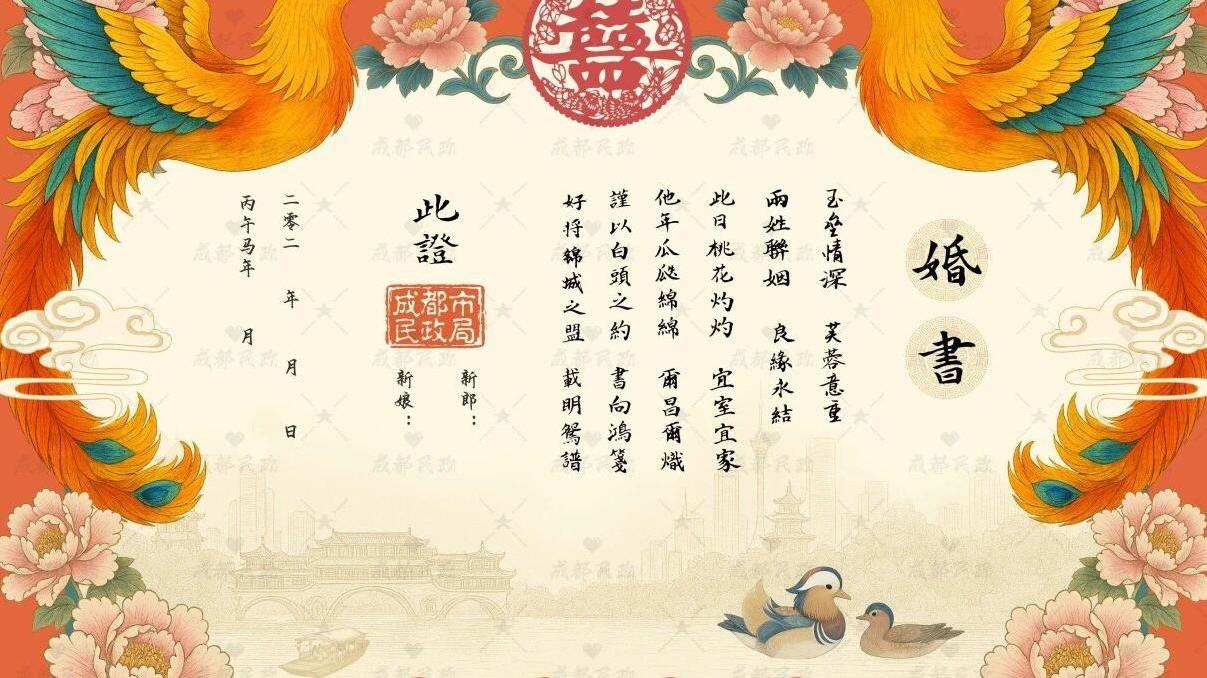 囍
婚書
玉垒情深 芙蓉意重
兩姓聯姻 良緣永結
此日桃花灼灼 宜室宜家
他年瓜瓞綿綿 爾昌爾熾
謹以白頭之約 書向鴻箋
好将錦城之盟 載明鴛譜
此證
成都市民政局
新郎：
新娘：
二零二 年 月 日
丙午马年 月
成都民政